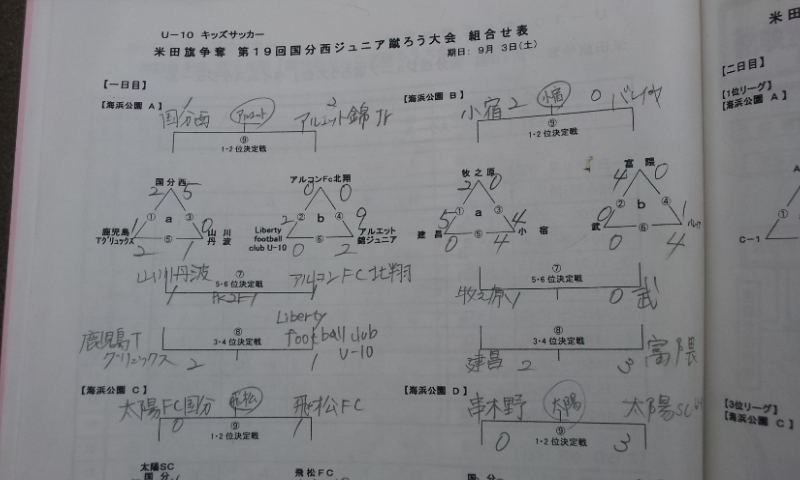 U－10 キッズサッカー
米田旗争奪 第19回国分西ジュニア蹴ろう大会 組合せ表
期日：9月 3日(土)
【一日目】
【海浜公園 A】
国分西 アルエット 2 アルエット錦Jr
⑨
1-2 位決定戦
【海浜公園 B】
小宿 2 小宿 0
⑨
1-2 位決定戦
国分西
2 5
① a ③
鹿児島
Tグリュックス
1 0
山川
丹波
⑤
2 1
アルコンFc北翔
0 0
② b ④
Liberty
football
club U-10
2 9
アルエット
錦ジュニア
⑥
0 2
牧之原
2 0
① a ③
5 4
建昌 ⑤ 小宿
0 4
富隈
4 0
② b ④
0 1
武 ⑥
0 4
山川丹波 アルコンFC北翔
⑦
5-6 位決定戦
1 PK2-1 1
牧之原 1 0 武
⑦
5-6 位決定戦
鹿児島T
グリュックス 2
⑧
3-4 位決定戦
1
Liberty
football club
U-10
建昌 2 3 富隈
⑧
3-4 位決定戦
【海浜公園 C】
太陽FC国分 飛松 飛松FC
0 1
⑨
1-2 位決定戦
【海浜公園 D】
串木野 太陽 太陽SC
0 3
⑨
1-2 位決定戦
太陽SC
国分
飛松FC
国分
米
【二日目】
【1位リーグ】
【海浜公園 A】
A
C－1
【3位リーグ】
【海浜公園 C】